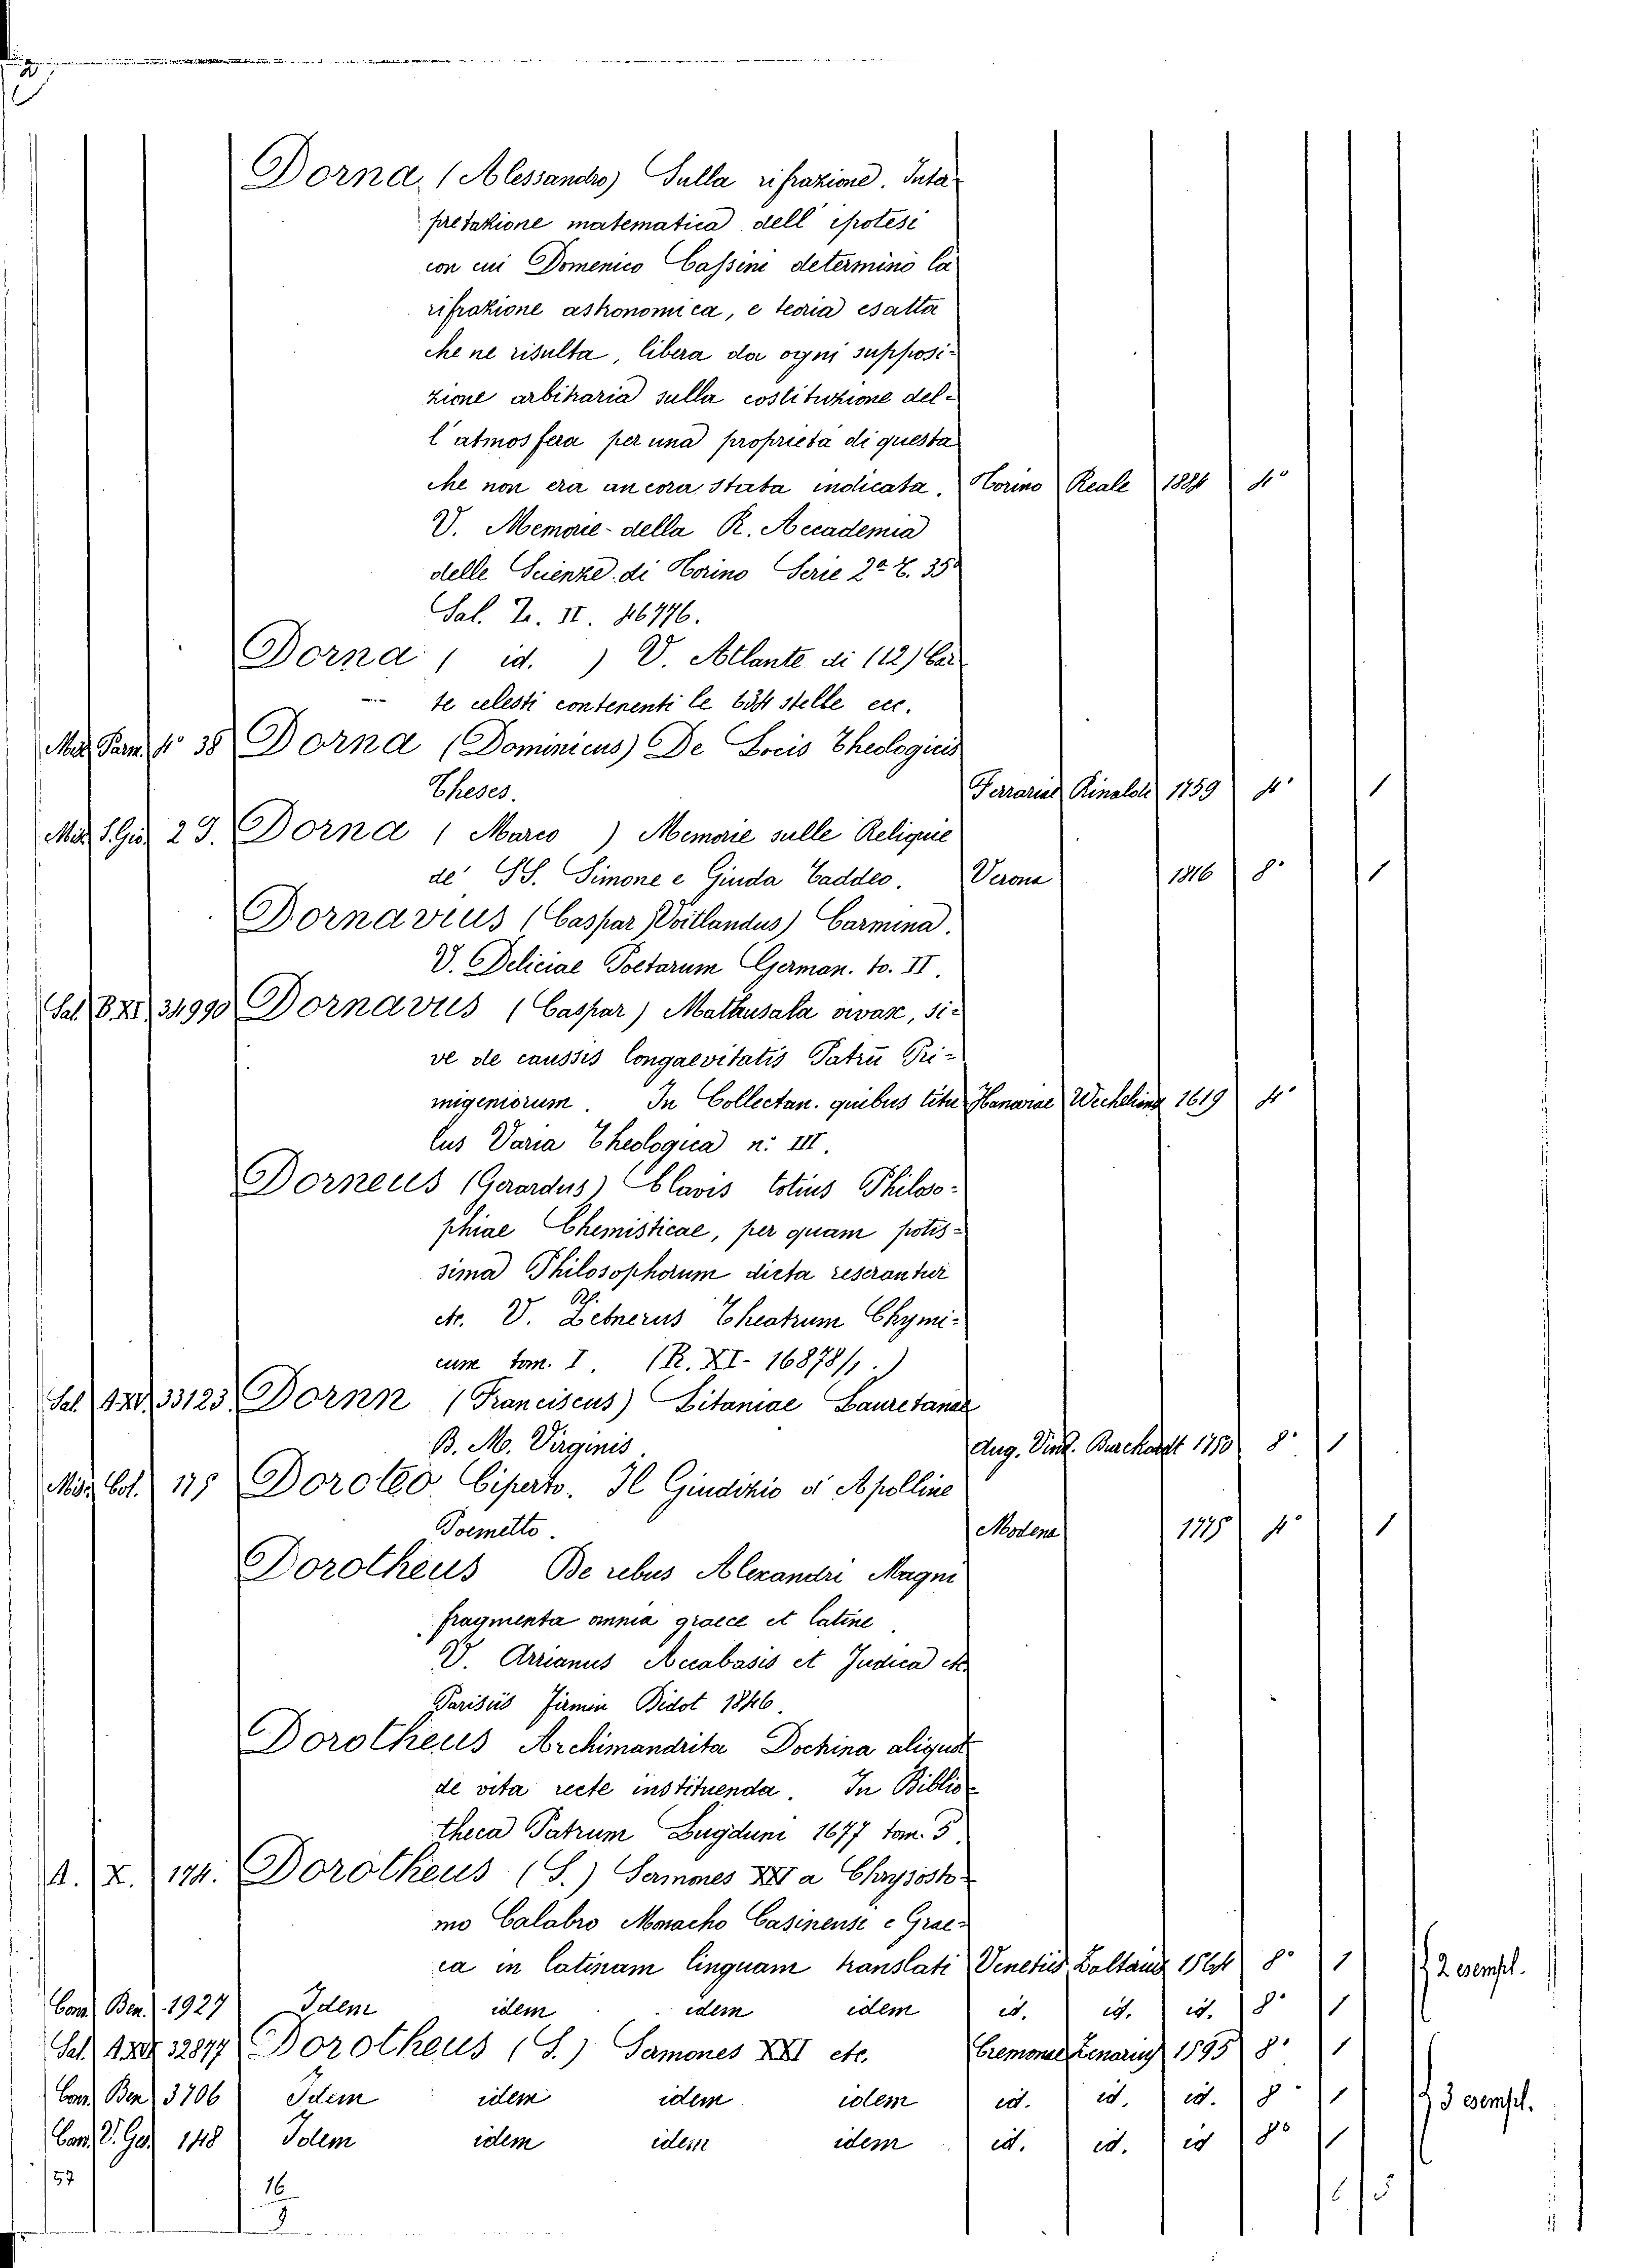 Dorna (Alessandro) Sulla rifrazione. Inter-
pretazione matematica dell' ipotesi
con cui Domenico Cassini determinò la
rifrazione astronomica, e teoria esatta
che ne risulta, libera da ogni supposi-
zione arbitraria sulla costituzione del-
l'atmosfera per una proprietà di questa
che non era ancora stata indicata. Torino Reale 1884 4°
V. Memorie della R. Accademia
delle Scienze di Torino Serie 2ª T. 35°
Sal. Z. II. 46776.
Dorna ( id. ) V. Atlante di (12) Car
te celesti contenenti le 634 stelle ecc.
Mis. Parm. 4° 38 Dorna (Dominicus) De Locis Theologicis
Theses. Ferrariae Rinaldi 1759 4° 1
Mis. S. Gio. 29. Dorna (Marco) Memorie sulle Reliquie
de' SS. Simone e Giuda Taddeo. Verona 1816 8° 1
Dornavius (Caspar Voitlandus) Carmina.
V. Deliciae Poetarum German. to. II.
Sal. B. XI. 34990 Dornavius (Caspar) Mathusala vivax, si-
ve de caussis longaevitatis Patrū Pri-
migeniorum. In Collectan. quibus titu Hanoviae Wechelins 1619 4°
lus Varia Theologica n: III.
Dorneus (Gerardus) Clavis totius Philoso-
phiae Chemisticae, per quam potis-
sima Philosophorum dicta reserantur
etc. V. Zetnerus Theatrum Chymi-
cum tom. I. (R. XI. 16878/1.)
Sal. 33123. Dornn (Franciscus) Litaniae Lauretanae
B. M. Virginis. Aug. Vind. Burckardt 1750 8° 1
Mis. Col. 175 Doroteo Ciperto. Il Giudizio di Apolline
Poemetto. Modena 1775 4° 1
Dorotheus De rebus Alexandri Magni
fragmenta omnia graece et latine
V. Arrianus Anabasis et Indica etc
Parisiis Firmin Didot 1846.
Dorotheus Archimandrita Doctrina aliquot
de vita recte instituenda. In Biblio-
theca Patrum Lugduni 1677 tom. 5.
A. X. 174. Dorotheus (S.) Sermones XXI a Chrysosto-
mo Calabro Monacho Casinense e Grae-
ca in latinam linguam translati Venetiis 1564 8° 1 2 esempl.
Conv. Ben. 1927 Idem idem idem idem id. id. id. 8° 1
Sal. 32877 Dorotheus (S.) Sermones XXI etc. Cremonae Zenarius 1595 8° 1
Conv. Ben. 3706 Idem idem idem idem id. id. id. 8° 1 3 esempl.
Conv. 148 Idem idem idem idem id. id. id 8° 1
57 16 6 5